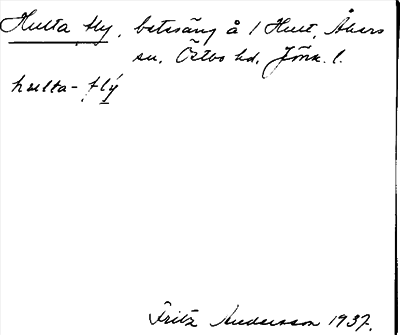 Hulta fly, betesäng å 1 Hult, Åkers
sn, Östbo hd, Jönk. l.
hulta- flý
Fritz Andersson 1937.